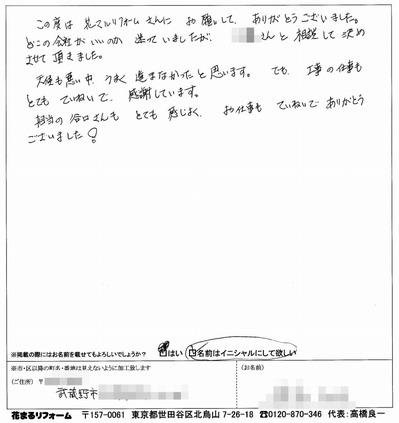 この度は 花マルリフォームさんに お願いして、ありがとうございました。
どこの会社がいいのか 迷っていましたが、 さんと相談して決め
させて頂きました。
天候も悪い中、うまく進まなかったと思います。でも、工事の仕事も
とても ていねいで、感謝しています。
担当の谷口さんも とても感じよく、お仕事も ていねいで ありがとう
ございました!
※掲載の際にはお名前を載せてもよろしいでしょうか? □はい □名前はイニシャルにして欲しい
※市・区以降の町名・番地は見えないように加工致します
(ご住所) 〒
武蔵野市
(お名前)
花まるリフォーム 〒157-0061 東京都世田谷区北烏山 7-26-18 ☎0120-870-346 代表:高橋良一